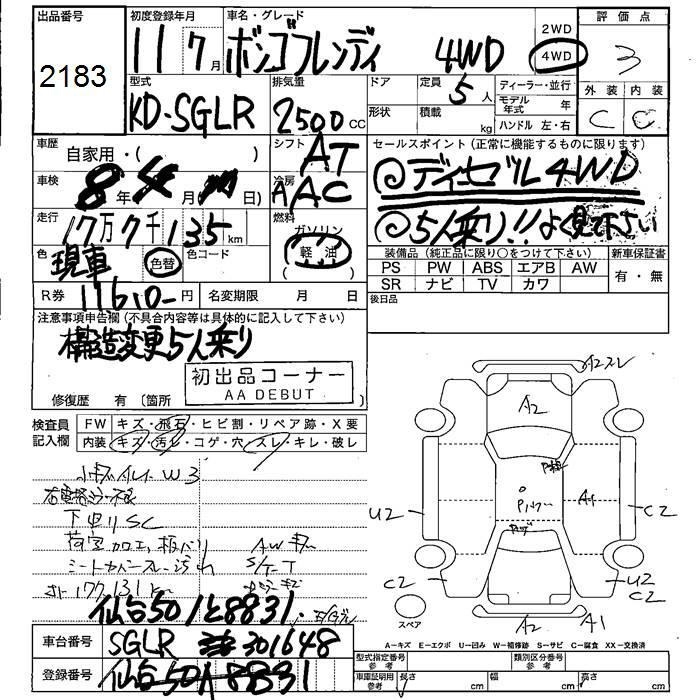 出品番号 初度登録年月 車名・グレード 2WD 評価点
2183 11 7月 ボンゴフレンディ 4WD 4WD 3
型式 排気量 ドア 定員 ディーラー・並行 外装 内装
KD-SGLR 2500 CC 5人 モデル年式 年 C C
形状 積載 kg ハンドル 左・右
車歴 自家用・( ) シフト AT セールスポイント (正常に機能するものに限ります)
車検 8年 月 日) 冷房 AAC ◎ディーゼル4WD
走行 17万7千135km 燃料 ガソリン 軽油 ◎5人乗り!!よく見て下さい
色 現車 色替 色コード 装備品 (純正品に限り○をつけて下さい) 新車保証書
PS PW ABS エアB AW 有・無
SR ナビ TV カワ
R券 11610- 名変期限 月 日 後日品
注意事項申告欄 (不具合内容等は具体的に記入して下さい)
構造変更5人乗り
初出品コーナー
AA DEBUT
修復歴 有 (箇所
検査員記入欄 FW キズ・飛石・ヒビ割・リペア跡・X要
内装 キズ・汚れ・コゲ・穴・スレ・キレ・破レ
A2スレ
A2
W3
下回りSC
荷室加工,板バリ AWキズ
シートカバースレ汚れ S/T-T
177,131km
仙台501と8831
U2 A1 C2
C2 U2
C2
スペア A2 A1
A=キズ E=エクボ U=凹み W=補修跡 S=サビ C=腐食 XX=交換済
車台番号 SGLR 301648 型式指定番号 参考 類別区分番号 参考
登録番号 仙台501 8831 車庫証明用 参考 長さ cm 幅 cm 高さ cm